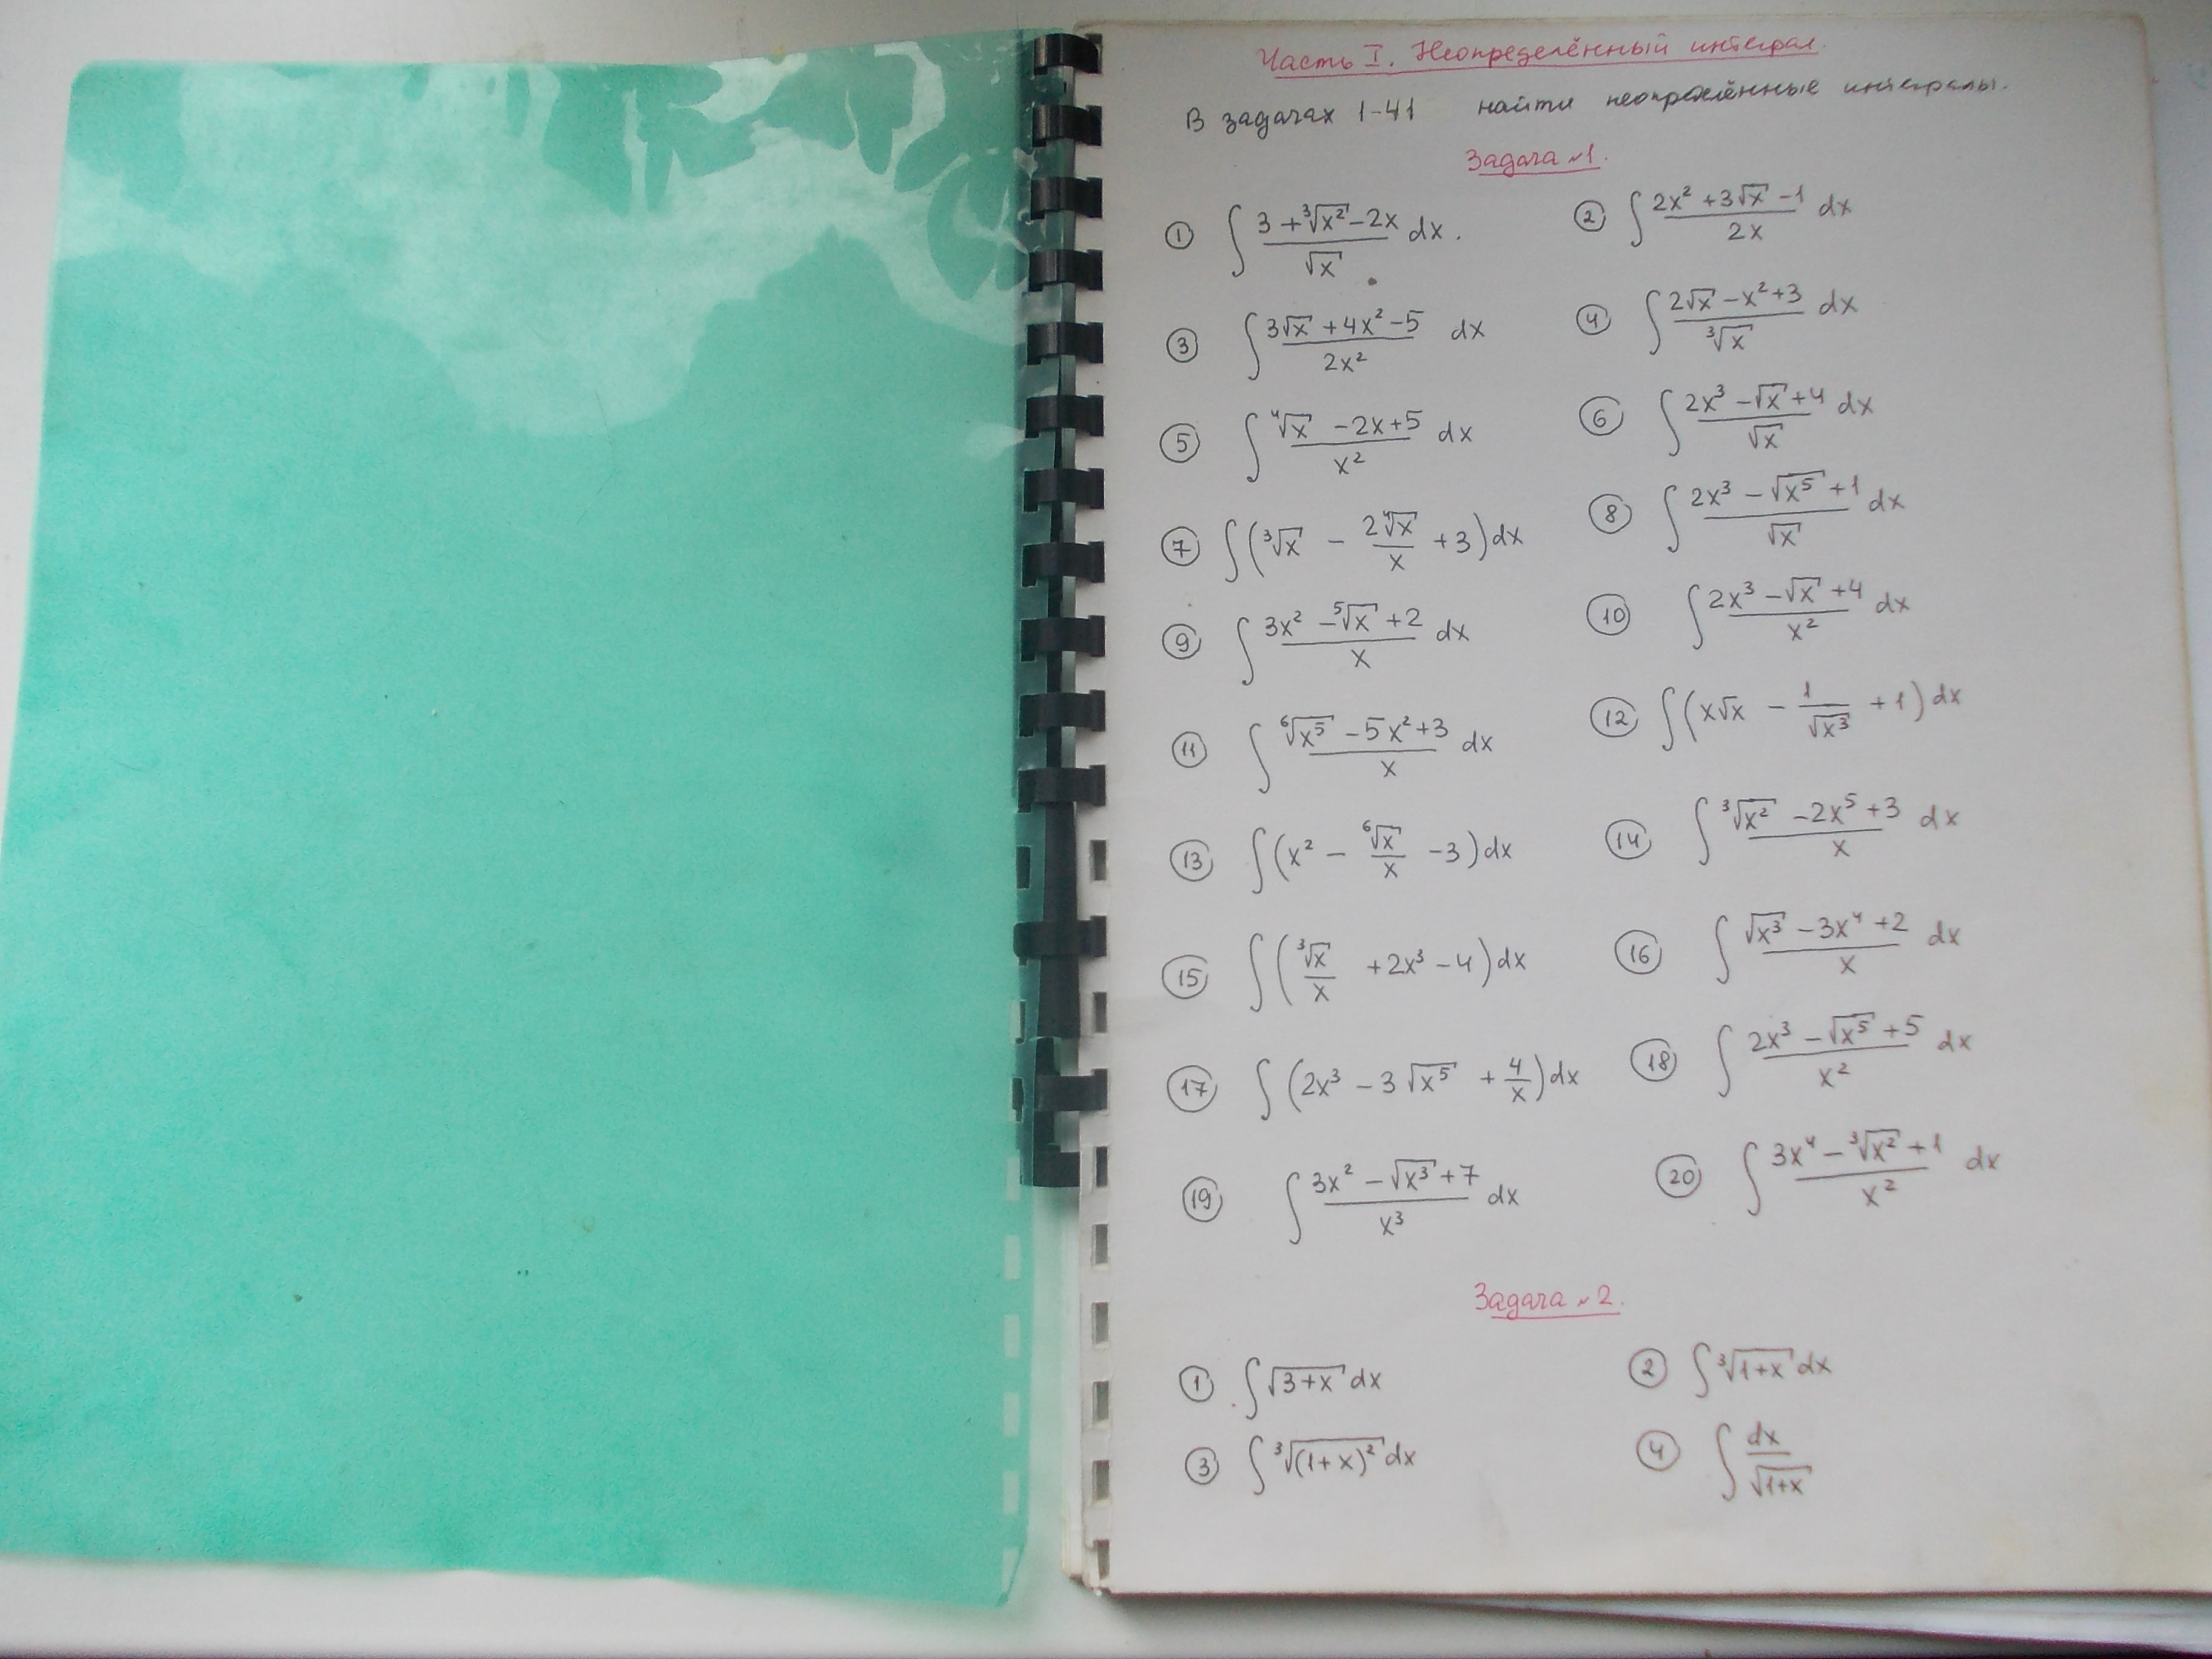 Часть I. Неопределённый интеграл.
В задачах 1-41 найти неопределённые интегралы.
Задача №1.
① ∫ (3 + ∛(x²) - 2x)/√x dx. ② ∫ (2x² + 3√x - 1)/(2x) dx
③ ∫ (3√x + 4x² - 5)/(2x²) dx ④ ∫ (2√x - x² + 3)/∛x dx
⑤ ∫ (∜x - 2x + 5)/x² dx ⑥ ∫ (2x³ - √x + 4)/√x dx
⑦ ∫ (∛x - 2∜x/x + 3) dx ⑧ ∫ (2x³ - √(x⁵) + 1)/√x dx
⑨ ∫ (3x² - ⁵√x + 2)/x dx ⑩ ∫ (2x³ - √x + 4)/x² dx
⑪ ∫ (⁶√(x⁵) - 5x² + 3)/x dx ⑫ ∫ (x√x - 1/√(x³) + 1) dx
⑬ ∫ (x² - ⁶√x/x - 3) dx ⑭ ∫ (∛(x²) - 2x⁵ + 3)/x dx
⑮ ∫ (∛x/x + 2x³ - 4) dx ⑯ ∫ (√(x³) - 3x⁴ + 2)/x dx
⑰ ∫ (2x³ - 3√(x⁵) + 4/x) dx ⑱ ∫ (2x³ - √(x⁵) + 5)/x² dx
⑲ ∫ (3x² - √(x³) + 7)/x³ dx ⑳ ∫ (3x⁴ - ∛(x²) + 1)/x² dx
Задача №2.
① ∫ √(3+x) dx ② ∫ ∛(1+x) dx
③ ∫ ∛((1+x)²) dx ④ ∫ dx/√(1+x)